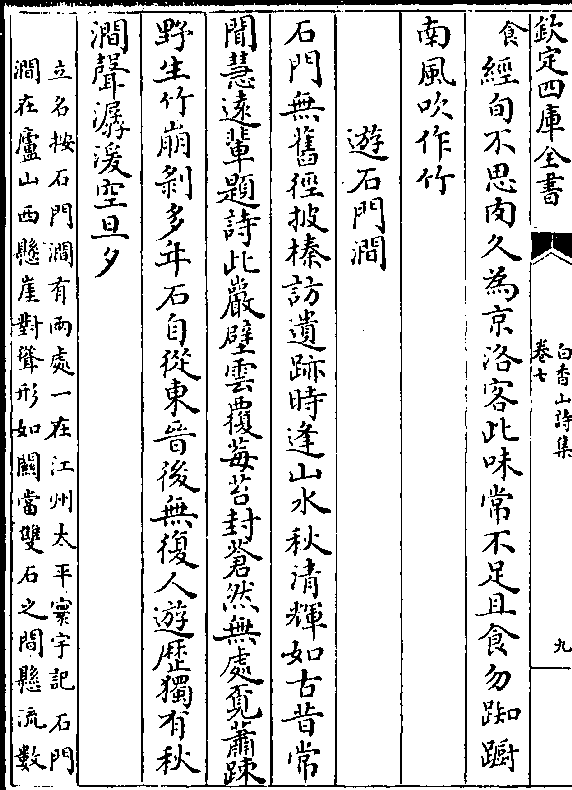 欽定四庫全書
白香山詩集
卷七
九
食經旬不思肉久為京洛客此味常不足且食勿踟躕
南風吹作竹
遊石門澗
石門無舊徑披榛訪遺跡時逢山水秋清輝如古昔常
聞慧遠輩題詩此巖壁雲覆莓苔封蒼然無處覓蕭踈
野生竹崩剝多年石自從東晉後無復人遊歷獨有秋
澗聲潺湲空旦夕
立名按石門澗有兩處一在江州太平寰宇記石門
澗在廬山西懸崖對聳形如闕當雙石之間懸流數